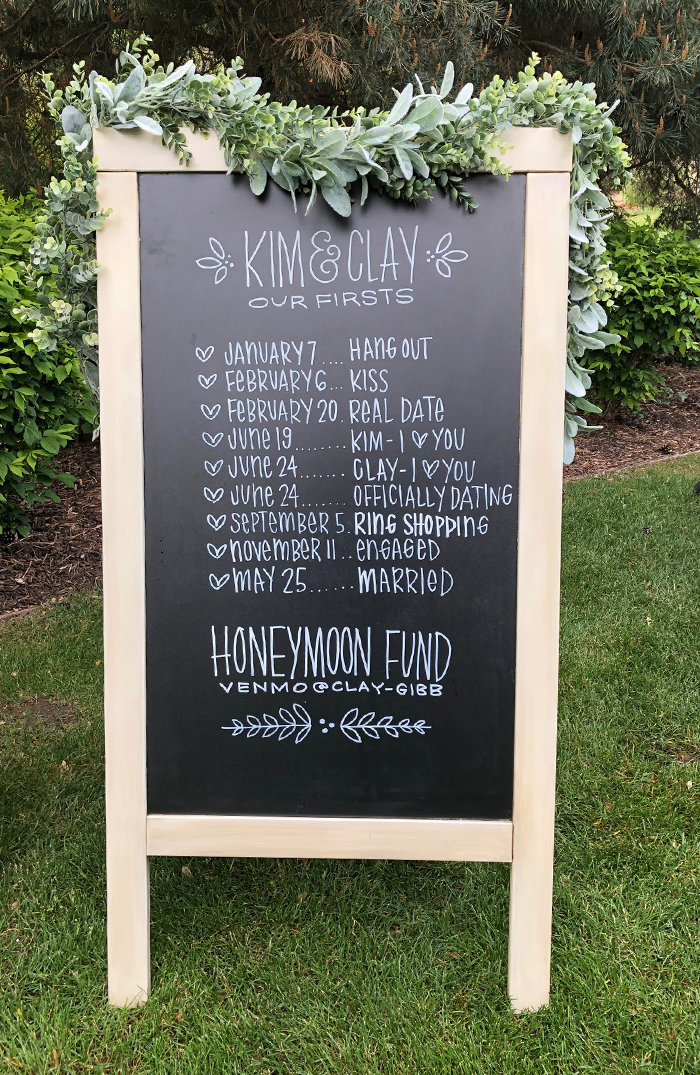 KIM & CLAY
OUR FIRSTS
JANUARY 7.... HANG OUT
FEBRUARY 6... KISS
FEBRUARY 20. REAL DATE
JUNE 19........ KIM-I ♡ YOU
JUNE 24....... CLAY-I ♡ YOU
JUNE 24....... OFFICIALLY DATING
SEPTEMBER 5. RING SHOPPING
NOVEMBER 11.. ENGAGED
MAY 25...... MARRIED
HONEYMOON FUND
VENMO@CLAY-GIBB